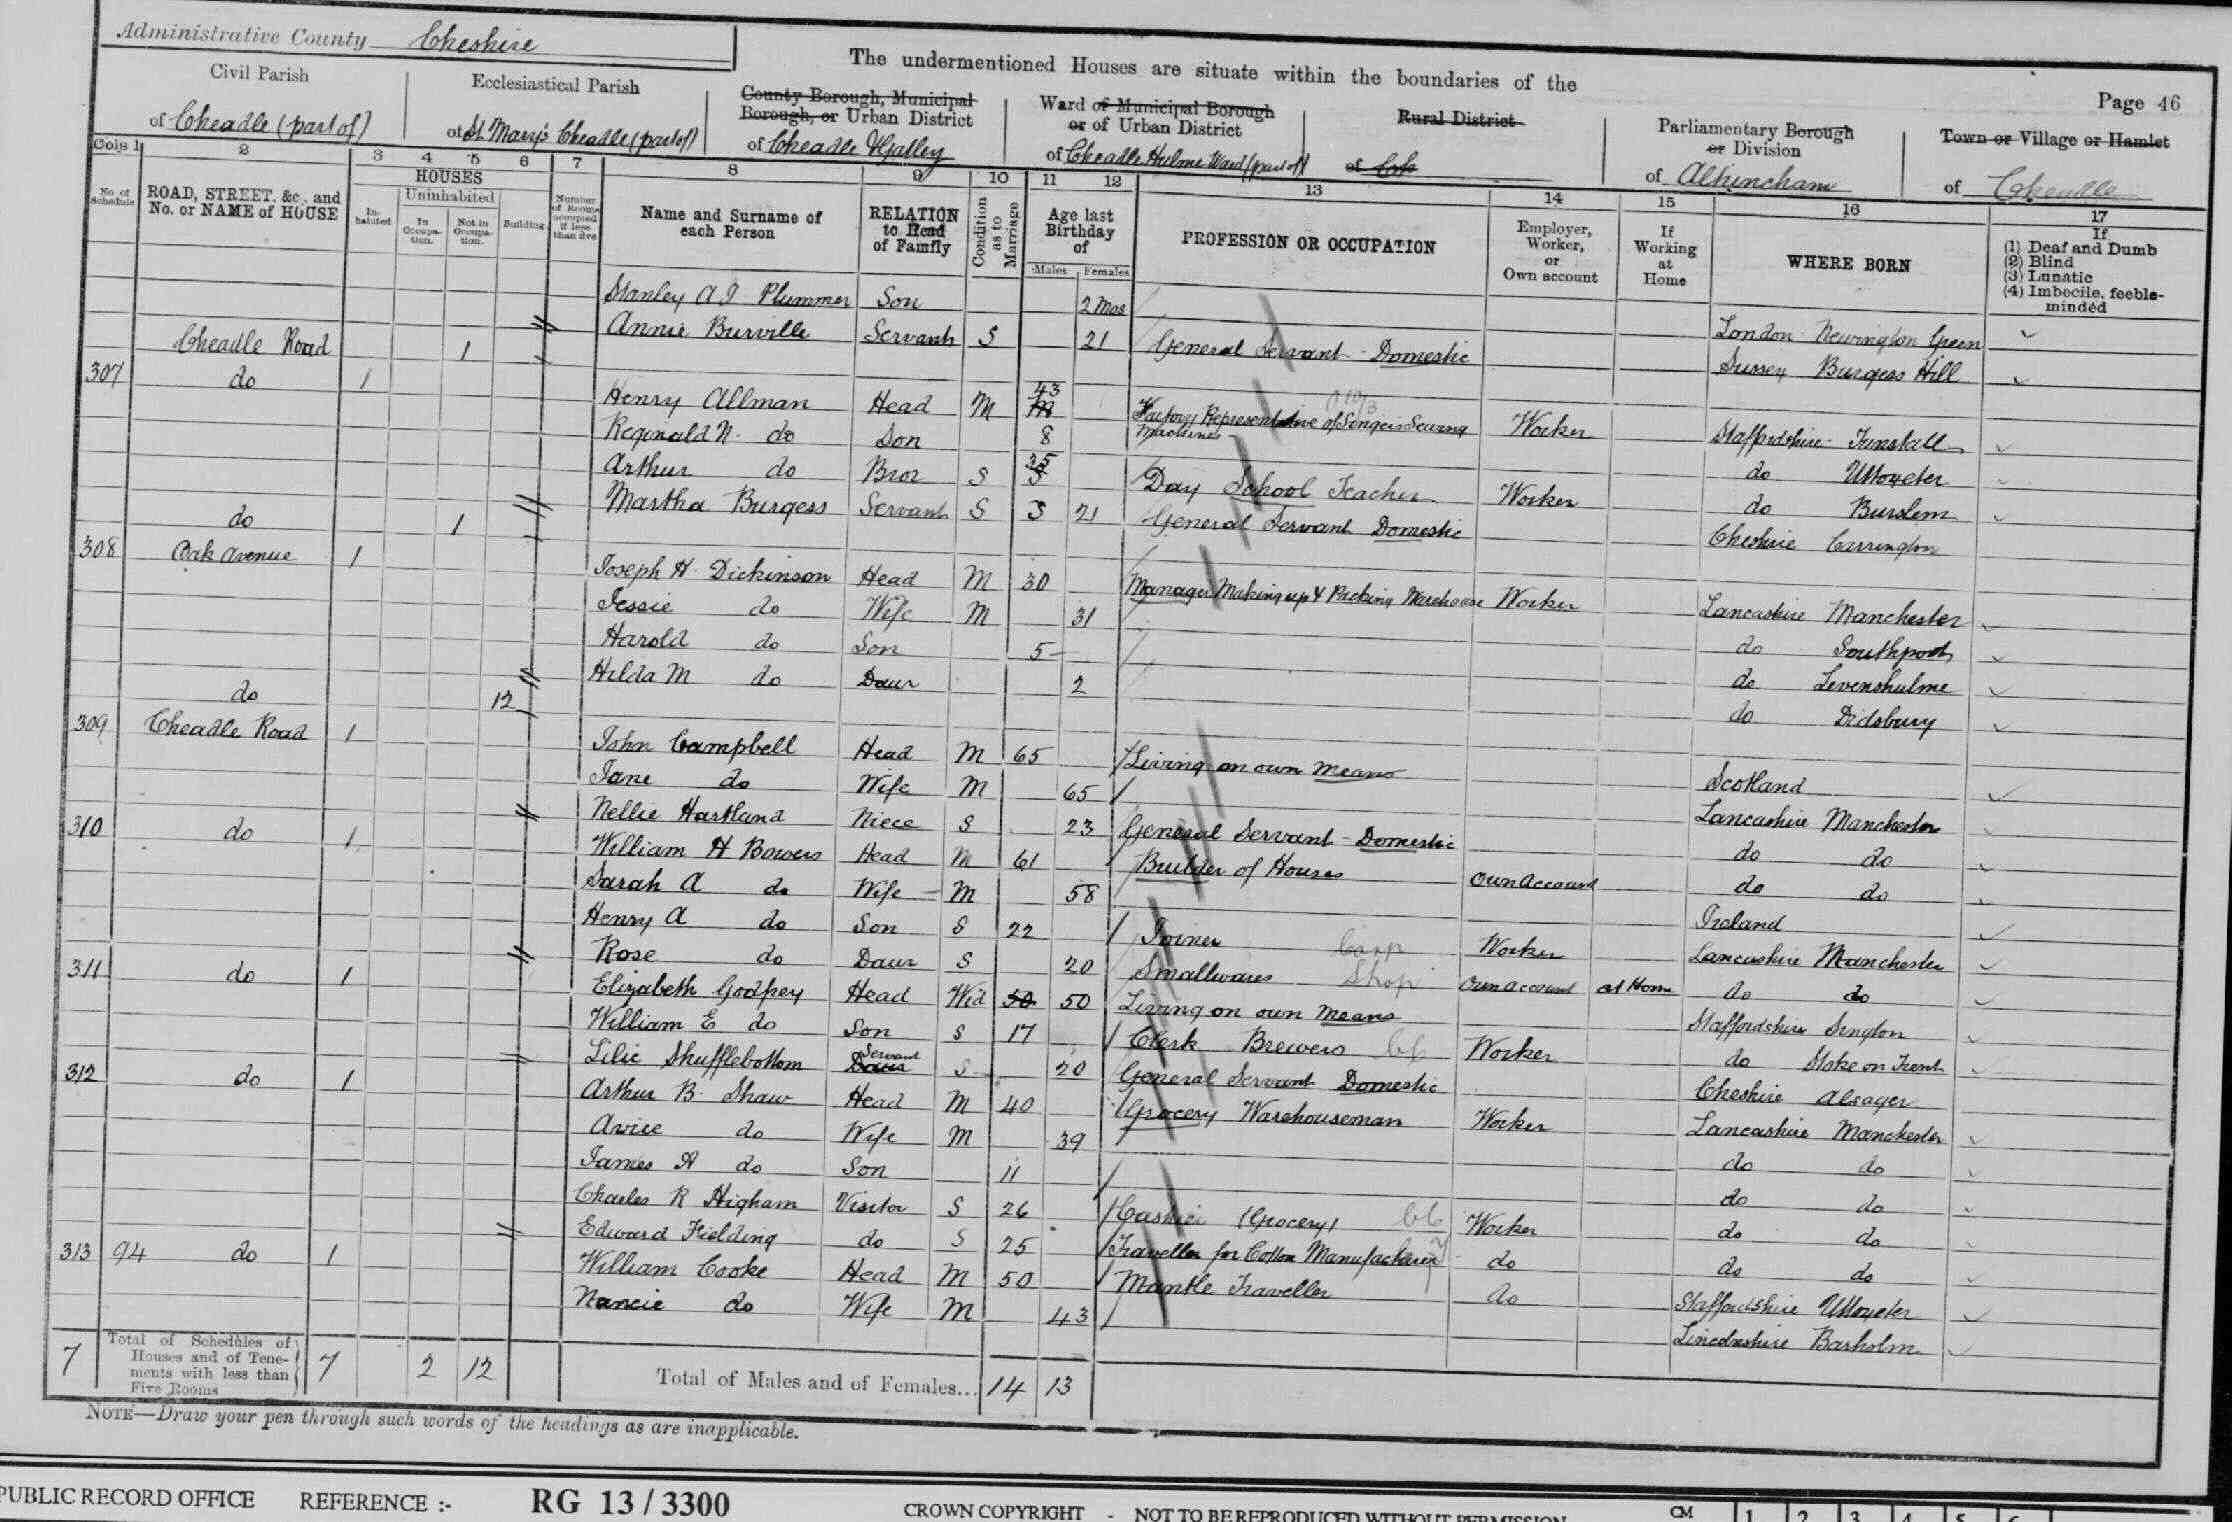 Administrative County Cheshire
The undermentioned Houses are situate within the boundaries of the
Page 46
Civil Parish
of Cheadle (part of)
Ecclesiastical Parish
of St. Mary's Cheadle (part of)
County Borough, Municipal Borough, or Urban District
of Cheadle & Gatley
Ward of Municipal Borough or of Urban District
of Cheadle Hulme Ward (part of)
Rural District
of
Parliamentary Borough or Division
of Altrincham
Town or Village or Hamlet
of Cheadle
Cols 1 2 3 4 5 6 7 8 9 10 11 12 13 14 15 16 17
No. of Schedule
ROAD, STREET, &c., and No. or NAME of HOUSE
HOUSES
Inhabited
Uninhabited
In Occupation.
Not in Occupation.
Building
Number of Rooms occupied if less than five
Name and Surname of each Person
RELATION to Head of Family
Condition as to Marriage
Age last Birthday of
Males Females
PROFESSION OR OCCUPATION
Employer, Worker, or Own account
If Working at Home
WHERE BORN
If
(1) Deaf and Dumb
(2) Blind
(3) Lunatic
(4) Imbecile, feeble-minded
Stanley A J Plummer Son 2 Mos London Newington Green
Annie Burville Servant S 21 General Servant - Domestic Sussex Burgess Hill
Cheadle Road 1
307 do 1 Henry Allman Head M 43 Factory Representative of Singers Sewing Machines Worker Staffordshire Tunstall
Reginald N. do Son 8 do Uttoxeter
Arthur do Bror S 35 Day School Teacher Worker do Burslem
Martha Burgess Servant S 21 General Servant Domestic Cheshire Carrington
do 1
308 Oak Avenue 1 Joseph H. Dickinson Head M 30 Manager Making up & Packing Warehouse Worker Lancashire Manchester
Jessie do Wife M 31 do Southport
Harold do Son 5 do Levenshulme
Hilda M do Daur 2 do Didsbury
do 12
309 Cheadle Road 1 John Campbell Head M 65 Living on own means Scotland
Jane do Wife M 65 Lancashire Manchester
Nellie Hartland Niece S 23 General Servant - Domestic do do
310 do 1 William H Bowers Head M 61 Builder of Houses own account do do
Sarah A do Wife M 58 Ireland
Henry A do Son S 22 Joiner Carp Worker Lancashire Manchester
Rose do Daur S 20 Smallwares Shop own account at Home do do
311 do 1 Elizabeth Godfrey Head Wid 50 50 Living on own means Staffordshire
William E do Son S 17 Clerk Brewers Worker do Stoke on Trent
Lilie Shufflebottom Servant S 20 General Servant Domestic Cheshire Alsager
312 do 1 Arthur B. Shaw Head M 40 Grocery Warehouseman Worker Lancashire Manchester
Avice do Wife M 39 do do
James A do Son 11 do do
Charles R Higham Visitor S 26 Cashier (Grocery) Worker do do
Edward Fielding do S 25 Traveller for Cotton Manufacturer do do do
313 94 do 1 William Cooke Head M 50 Mantle Traveller do Staffordshire Uttoxeter
Nancie do Wife M 43 Lincolnshire Barholm
7 Total of Schedules of Houses and of Tenements with less than Five Rooms 7 2 12 Total of Males and of Females... 14 13
NOTE—Draw your pen through such words of the headings as are inapplicable.
PUBLIC RECORD OFFICE REFERENCE :- RG 13 / 3300 CROWN COPYRIGHT - NOT TO BE REPRODUCED WITHOUT PERMISSION
CM 1 2 3 4 5 6